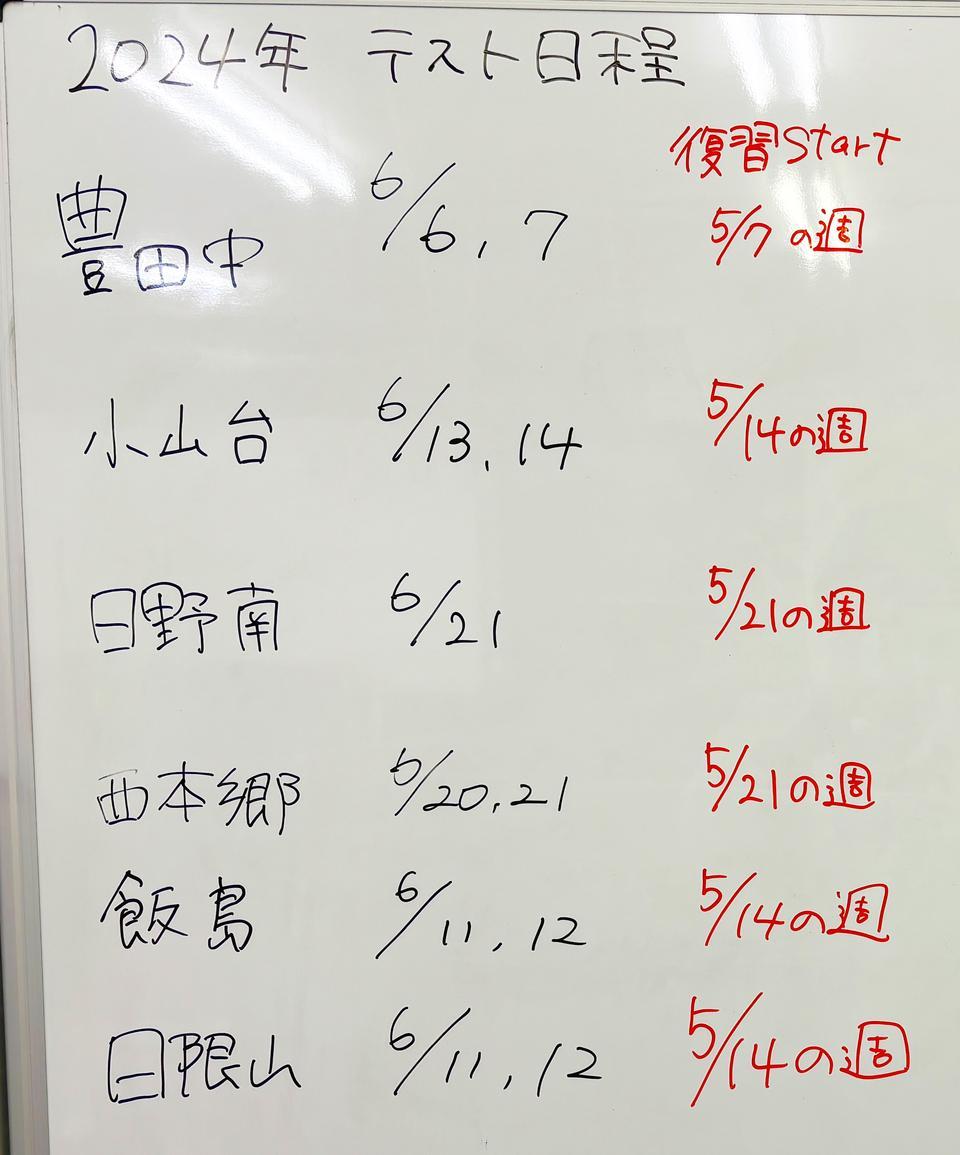 2024年 テスト日程
復習Start
豊田中 6/6, 7 5/7の週
小山台 6/13, 14 5/14の週
日野南 6/21 5/21の週
西本郷 6/20, 21 5/21の週
飯島 6/11, 12 5/14の週
日限山 6/11, 12 5/14の週